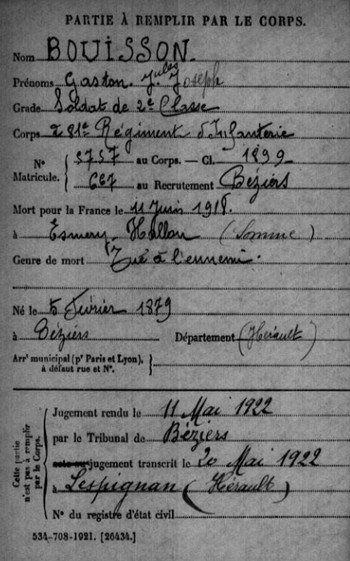 PARTIE À REMPLIR PAR LE CORPS.
Nom BOUISSON.
Prénoms Gaston Jules Joseph
Grade Soldat de 2e Classe
Corps 281e Régiment d'Infanterie
N° Matricule. { 5757 au Corps. — Cl. 1899
667 au Recrutement Béziers
Mort pour la France le 11 Juin 1918.
à Esmery-Hallon (Somme)
Genre de mort Tué à l'ennemi.
Né le 5 Février 1879
à Béziers Département (Hérault)
Arrt municipal (pr Paris et Lyon),
à défaut rue et N°.
Cette partie
n'est pas à remplir
par le Corps.
Jugement rendu le 11 Mai 1922
par le Tribunal de Béziers
jugement transcrit le 20 Mai 1922
à Lespignan (Hérault)
N° du registre d'état civil
534-708-1921. [26434.]